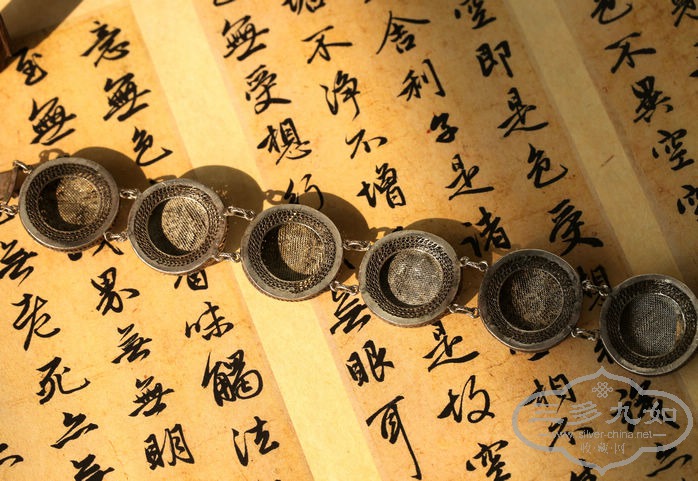 色不異空空
空即是色受想
舍利子是諸相
不淨不增是故空
無受想行無眼耳
意無色香味觸法
至無界無無明
無老死亦無
三多九如
www.silver-china.net
收藏网